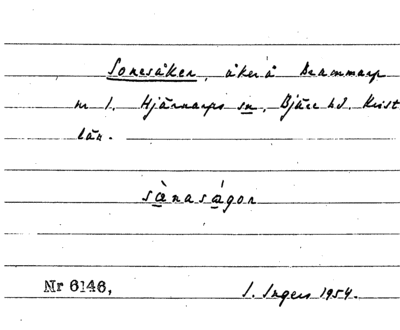 Sonesåker, åker å Brammarp
nr 1. Hjärnarps sn, Bjäre hd. Krist
län.
sànaságor
Nr 6146,
I. Ingers 1954.